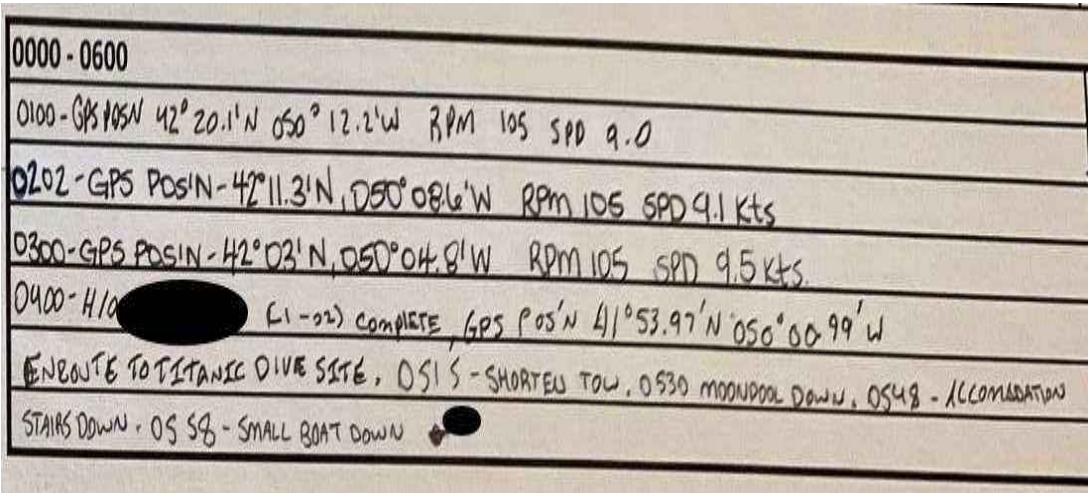 0000 - 0600
0100-GPS POSN 42° 20.1'N 050° 12.2'W RPM 105 SPD 9.0
0202-GPS POS'N-42°11.3'N, 050°08.6'W RPM 105 SPD 9.1 Kts
0300-GPS POSIN-42°03'N, 050°04.8'W RPM 105 SPD 9.5 Kts.
0400-H/O (1-02) COMPLETE, GPS POS'N 41°53.97'N 050°00.99'W
ENROUTE TO TITANIC DIVE SITE. 0515-SHORTEN TOW. 0530 MOONPOOL DOWN. 0548-ACCOMADATION
STAIRS DOWN. 0558-SMALL BOAT DOWN